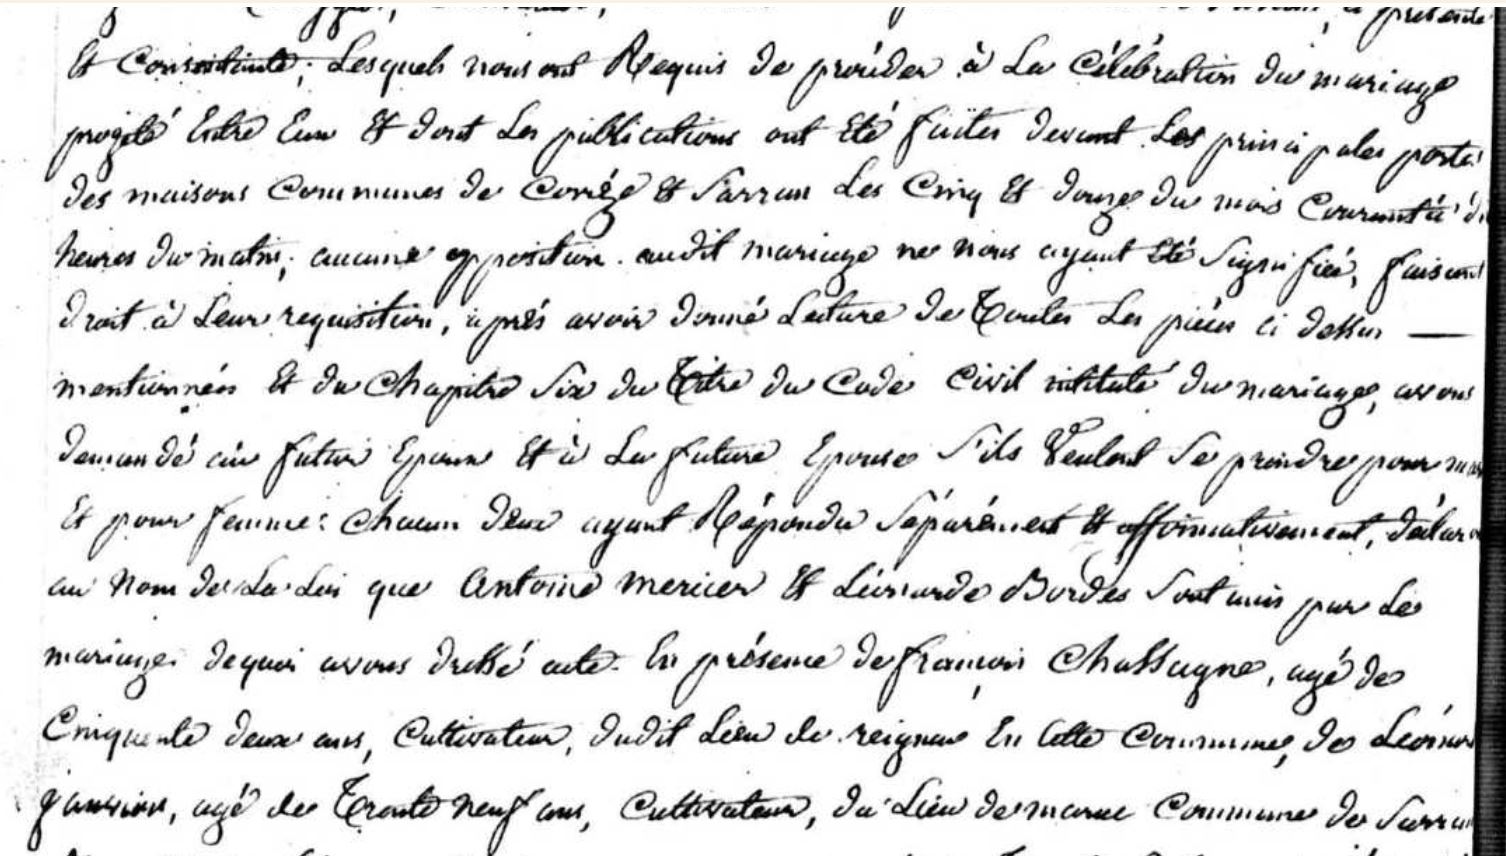 présente
Et Consentante; Lesquels nous ont Requis de procéder à La Célébration du mariage
projeté Entre Eux Et dont Les publications ont Eté faites devant Les principales portes
des maisons Communes de Corrèze Et Sarran Les Cinq Et douze du mois Courant à
heures du matin; aucune opposition audit mariage ne nous ayant Eté Signifiée, faisant
droit à Leur requisition, après avoir donné Lecture de Toutes Les pièces ci dessus —
mentionnées Et du Chapitre Six du Titre du Code Civil intitulé du mariage, avons
demandé au futur Epoux Et à La future Epouse S'ils Veulent Se prendre pour
Et pour femme: Chacun deux ayant Répondu Séparément Et affirmativement, déclarons
au Nom de La Loi que Antoine Mercier Et Léonarde Bordes Sont unis par Le
mariage. de quoi avons dressé acte. En présence de françois Chassagne, agé de
Cinquante deux ans, Cultivateur, dudit Lieu de En Cette Commune, de Léonard
agé de Trente Neuf ans, Cultivateur, du Lieu de Commune de Sarran